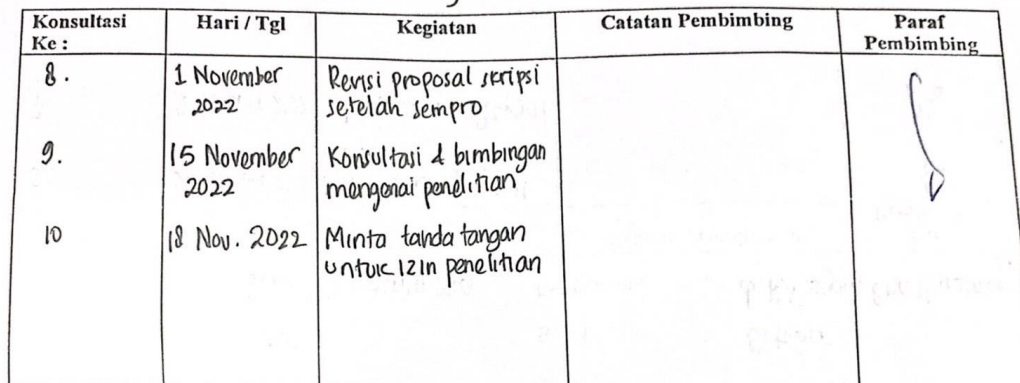 Konsultasi Ke : Hari / Tgl Kegiatan Catatan Pembimbing Paraf Pembimbing
8. 1 November Revisi proposal skripsi
2022 setelah sempro
9. 15 November Konsultasi & bimbingan
2022 mengenai penelitian
10 18 Nov. 2022 Minta tanda tangan
untuk izin penelitian